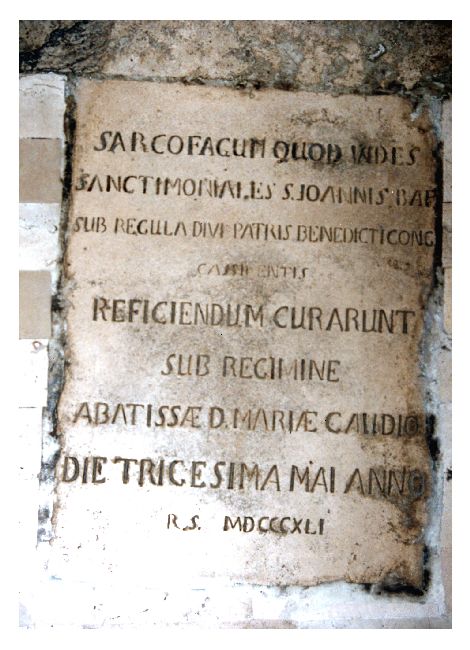 SARCOFAGUM QUOD VIDES
SANCTIMONIALES S. JOANNIS BAP
SUB REGULA DIVI PATRIS BENEDICTI CONG
REFICIENDUM CURARUNT
SUB REGIMINE
ABATISSÆ D. MARIÆ GAUDIO
DIE TRICESIMA MAI ANNO
R.S. MDCCCXLI